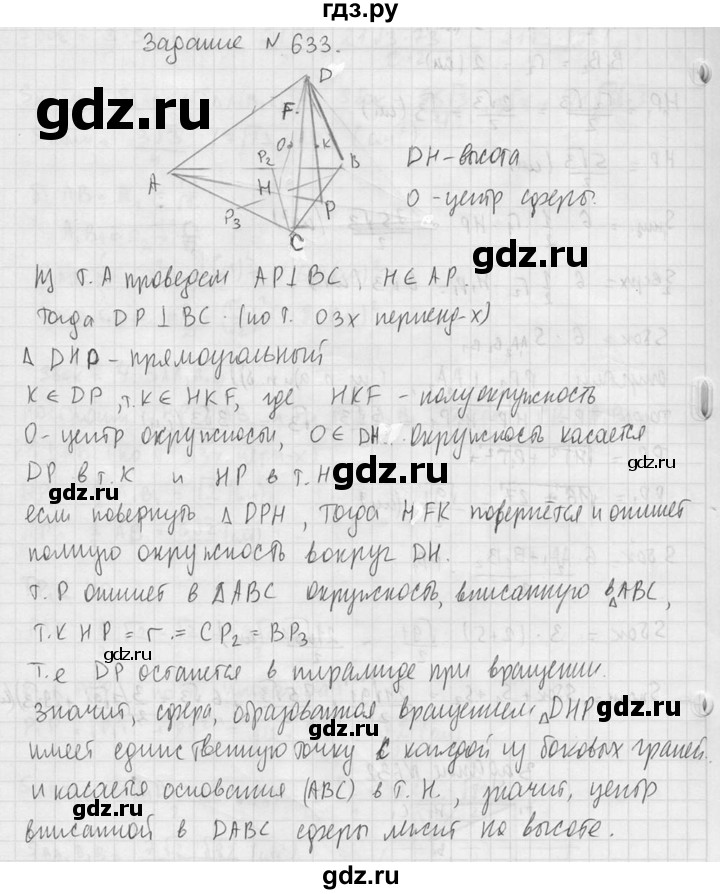 гдз.ру
Задание № 633.
D
F
O
K
P₂
B
A
H
P
P₃
C
DH - высота
O - центр сферы.
Из т. A проведем AP⊥BC H∈AP
Тогда DP⊥BC (по т. о 3х перпенд-х)
Δ DHP - прямоугольный
K∈DP, т.K∈HKF, где HKF - полуокружность
O - центр окружности, O∈DH. Окружность касается
DP в т. K и HP в т. H
если повернуть Δ DPH, тогда HFK повернется и опишет
полную окружность вокруг DH.
т. P опишет в ΔABC окружность, вписанную в ΔABC,
т.к HP = r = CP₂ = BP₃
т.е DP останется в пирамиде при вращении.
Значит, сфера, образованная вращением ΔDHP
имеет единственную точку с каждой из боковых граней
и касается основания (ABC) в т. H, значит, центр
вписанной в DABC сферы лежит на высоте.
gdz.ru
gdz.ru
gdz.ru
gdz.ru
gdz.ru
gdz.ru
gdz.ru
gdz.ru
gdz.ru
gdz.ru
gdz.ru
gdz.ru
gdz.ru
gdz.ru